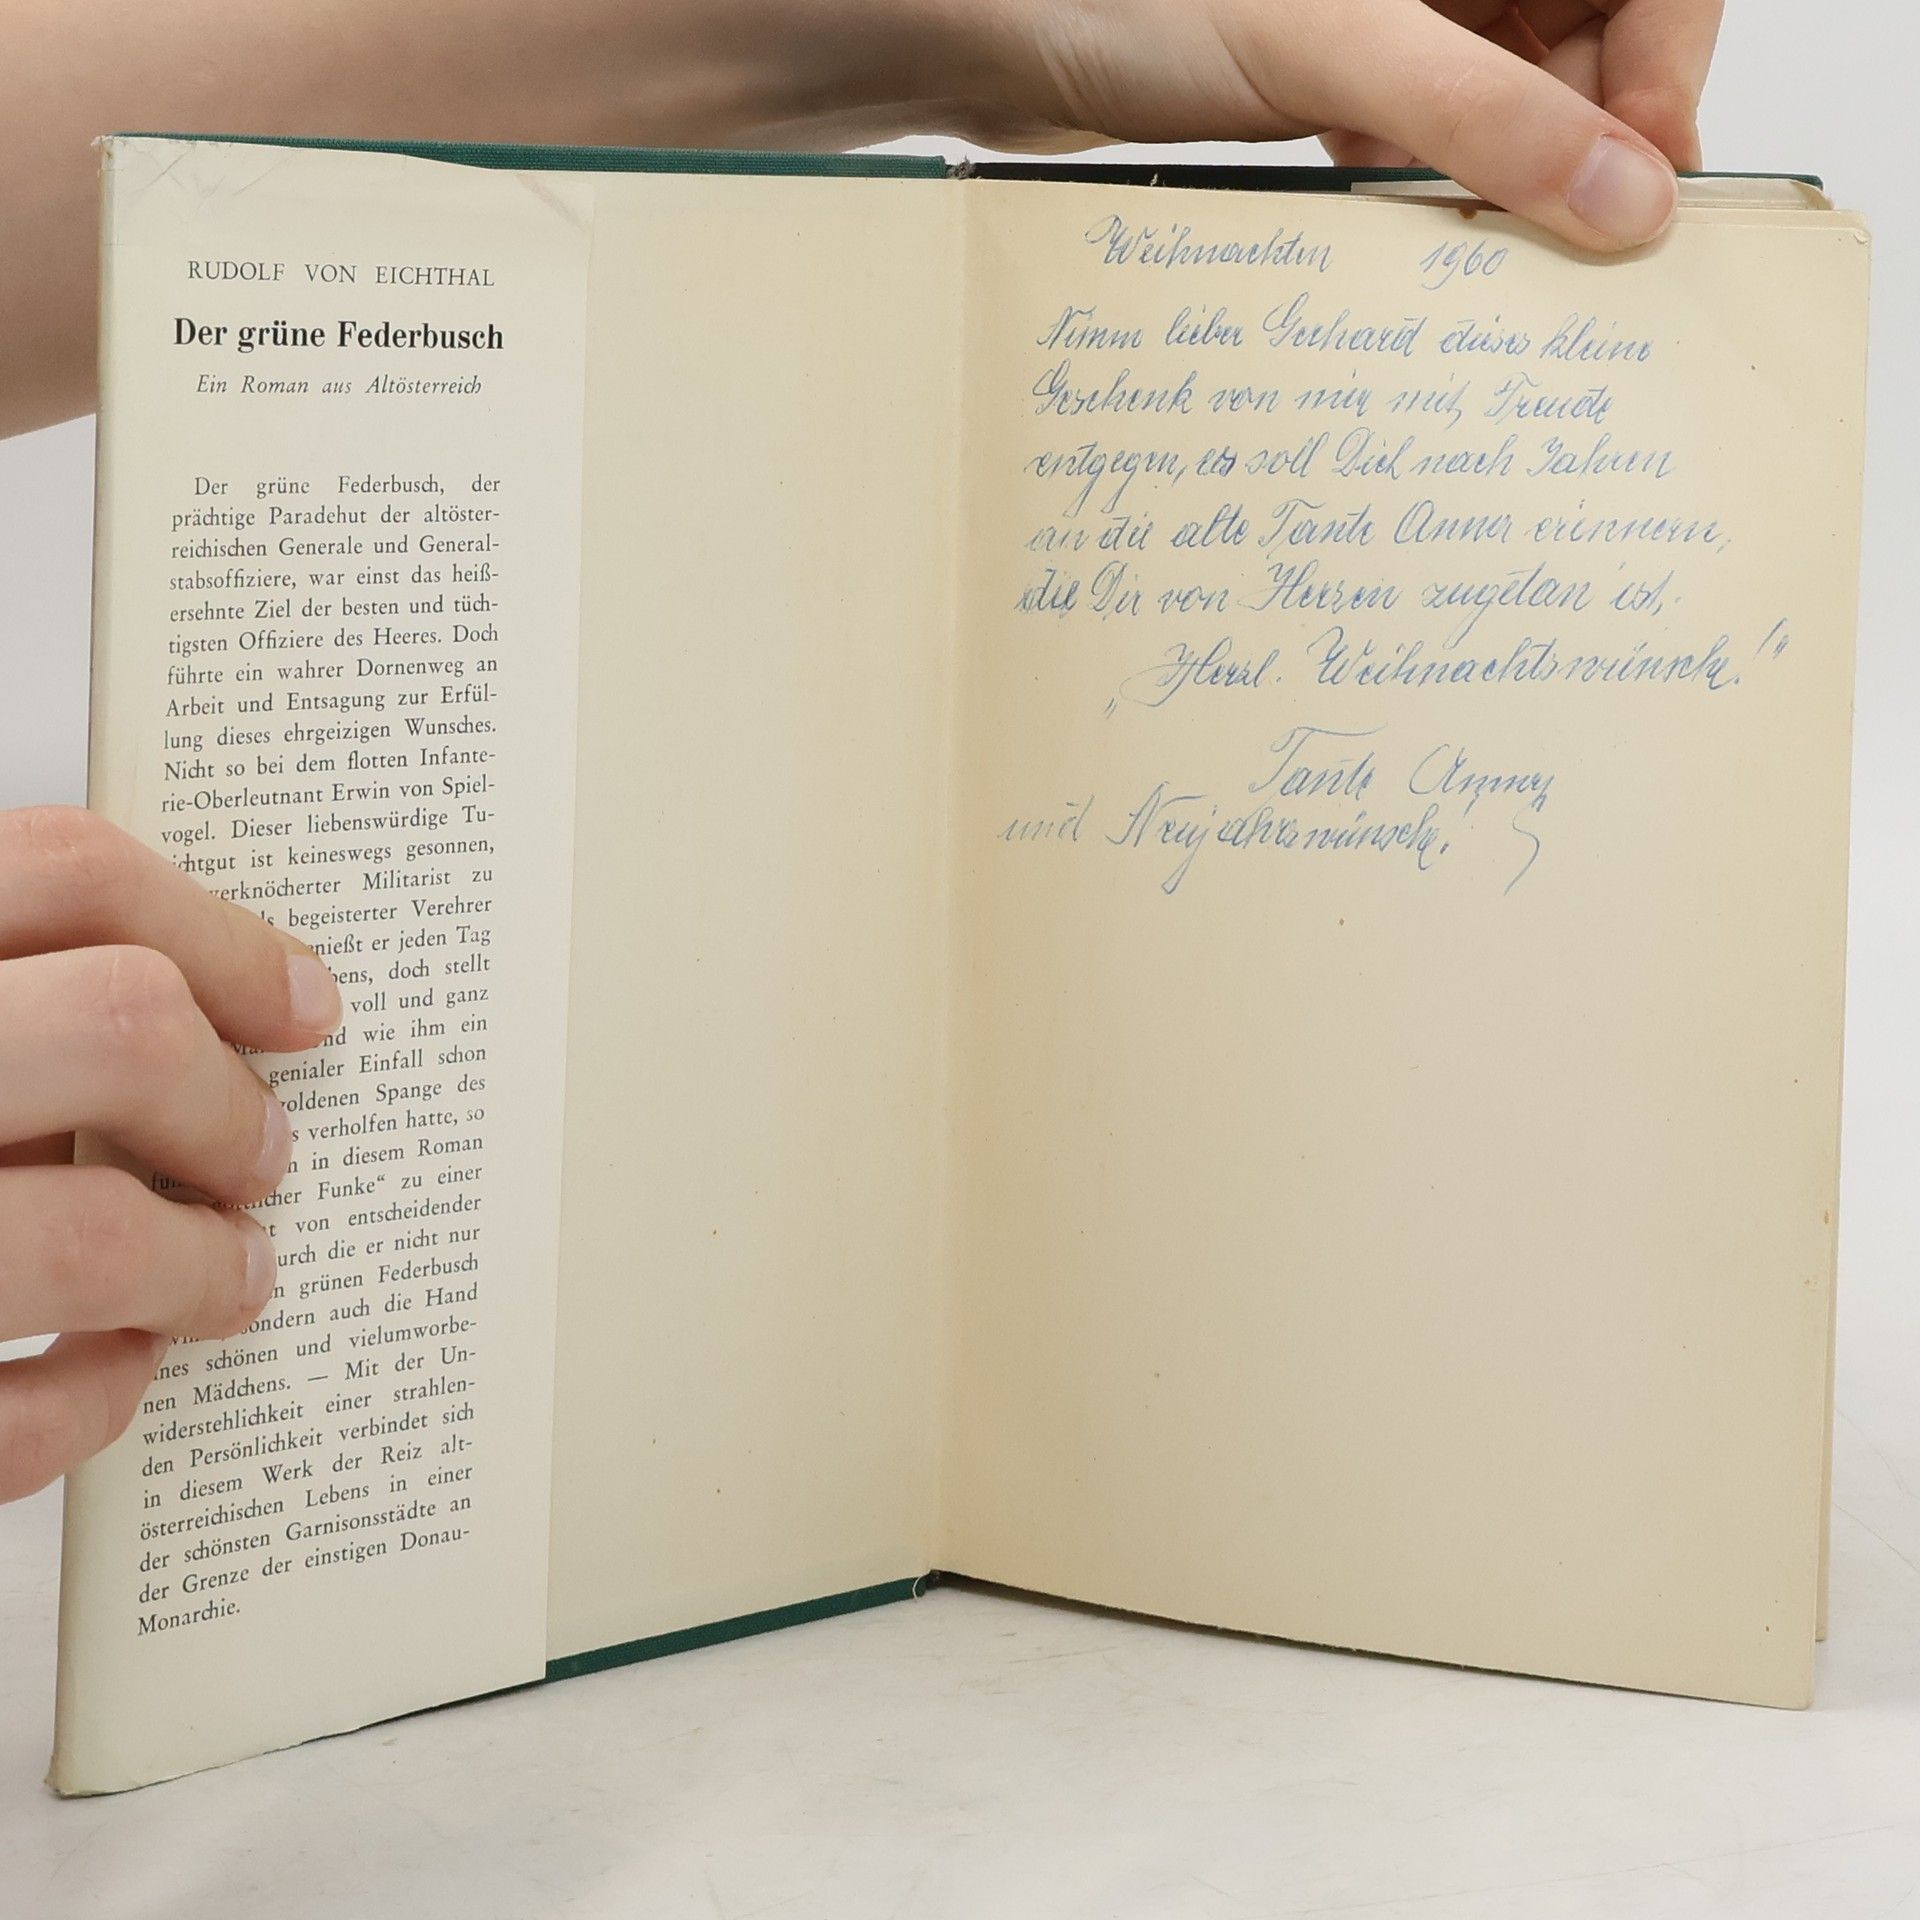 RUDOLF VON EICHTHAL
Der grüne Federbusch
Ein Roman aus Altösterreich
Der grüne Federbusch, der
prächtige Paradehut der altöster-
reichischen Generale und General-
stabsoffiziere, war einst das heiß-
ersehnte Ziel der besten und tüch-
tigsten Offiziere des Heeres. Doch
führte ein wahrer Dornenweg an
Arbeit und Entsagung zur Erfül-
lung dieses ehrgeizigen Wunsches.
Nicht so bei dem flotten Infante-
rie-Oberleutnant Erwin von Spiel-
vogel. Dieser liebenswürdige Tu-
ichtgut ist keineswegs gesonnen,
verknöcherter Militarist zu
begeisterter Verehrer
er jeden Tag
doch stellt
voll und ganz
wie ihm ein
genialer Einfall schon
goldenen Spange des
verholfen hatte, so
in diesem Roman
Funke“ zu einer
von entscheidender
die er nicht nur
grünen Federbusch
sondern auch die Hand
schönen und vielumworbe-
nen Mädchens. — Mit der Un-
widerstehlichkeit einer strahlen-
den Persönlichkeit verbindet sich
in diesem Werk der Reiz alt-
österreichischen Lebens in einer
der schönsten Garnisonsstädte an
der Grenze der einstigen Donau-
Monarchie.
Weihnachten 1960
Nimm lieber Gerhard dieses kleine
Geschenk von mir mit Freude
entgegen, es soll Dich nach Jahren
an die alte Tante Anna erinnern,
die Dir von Herzen zugetan ist.
„Herzl. Weihnachtswünsche!"
Tante Anna
und Neujahrswünsche!